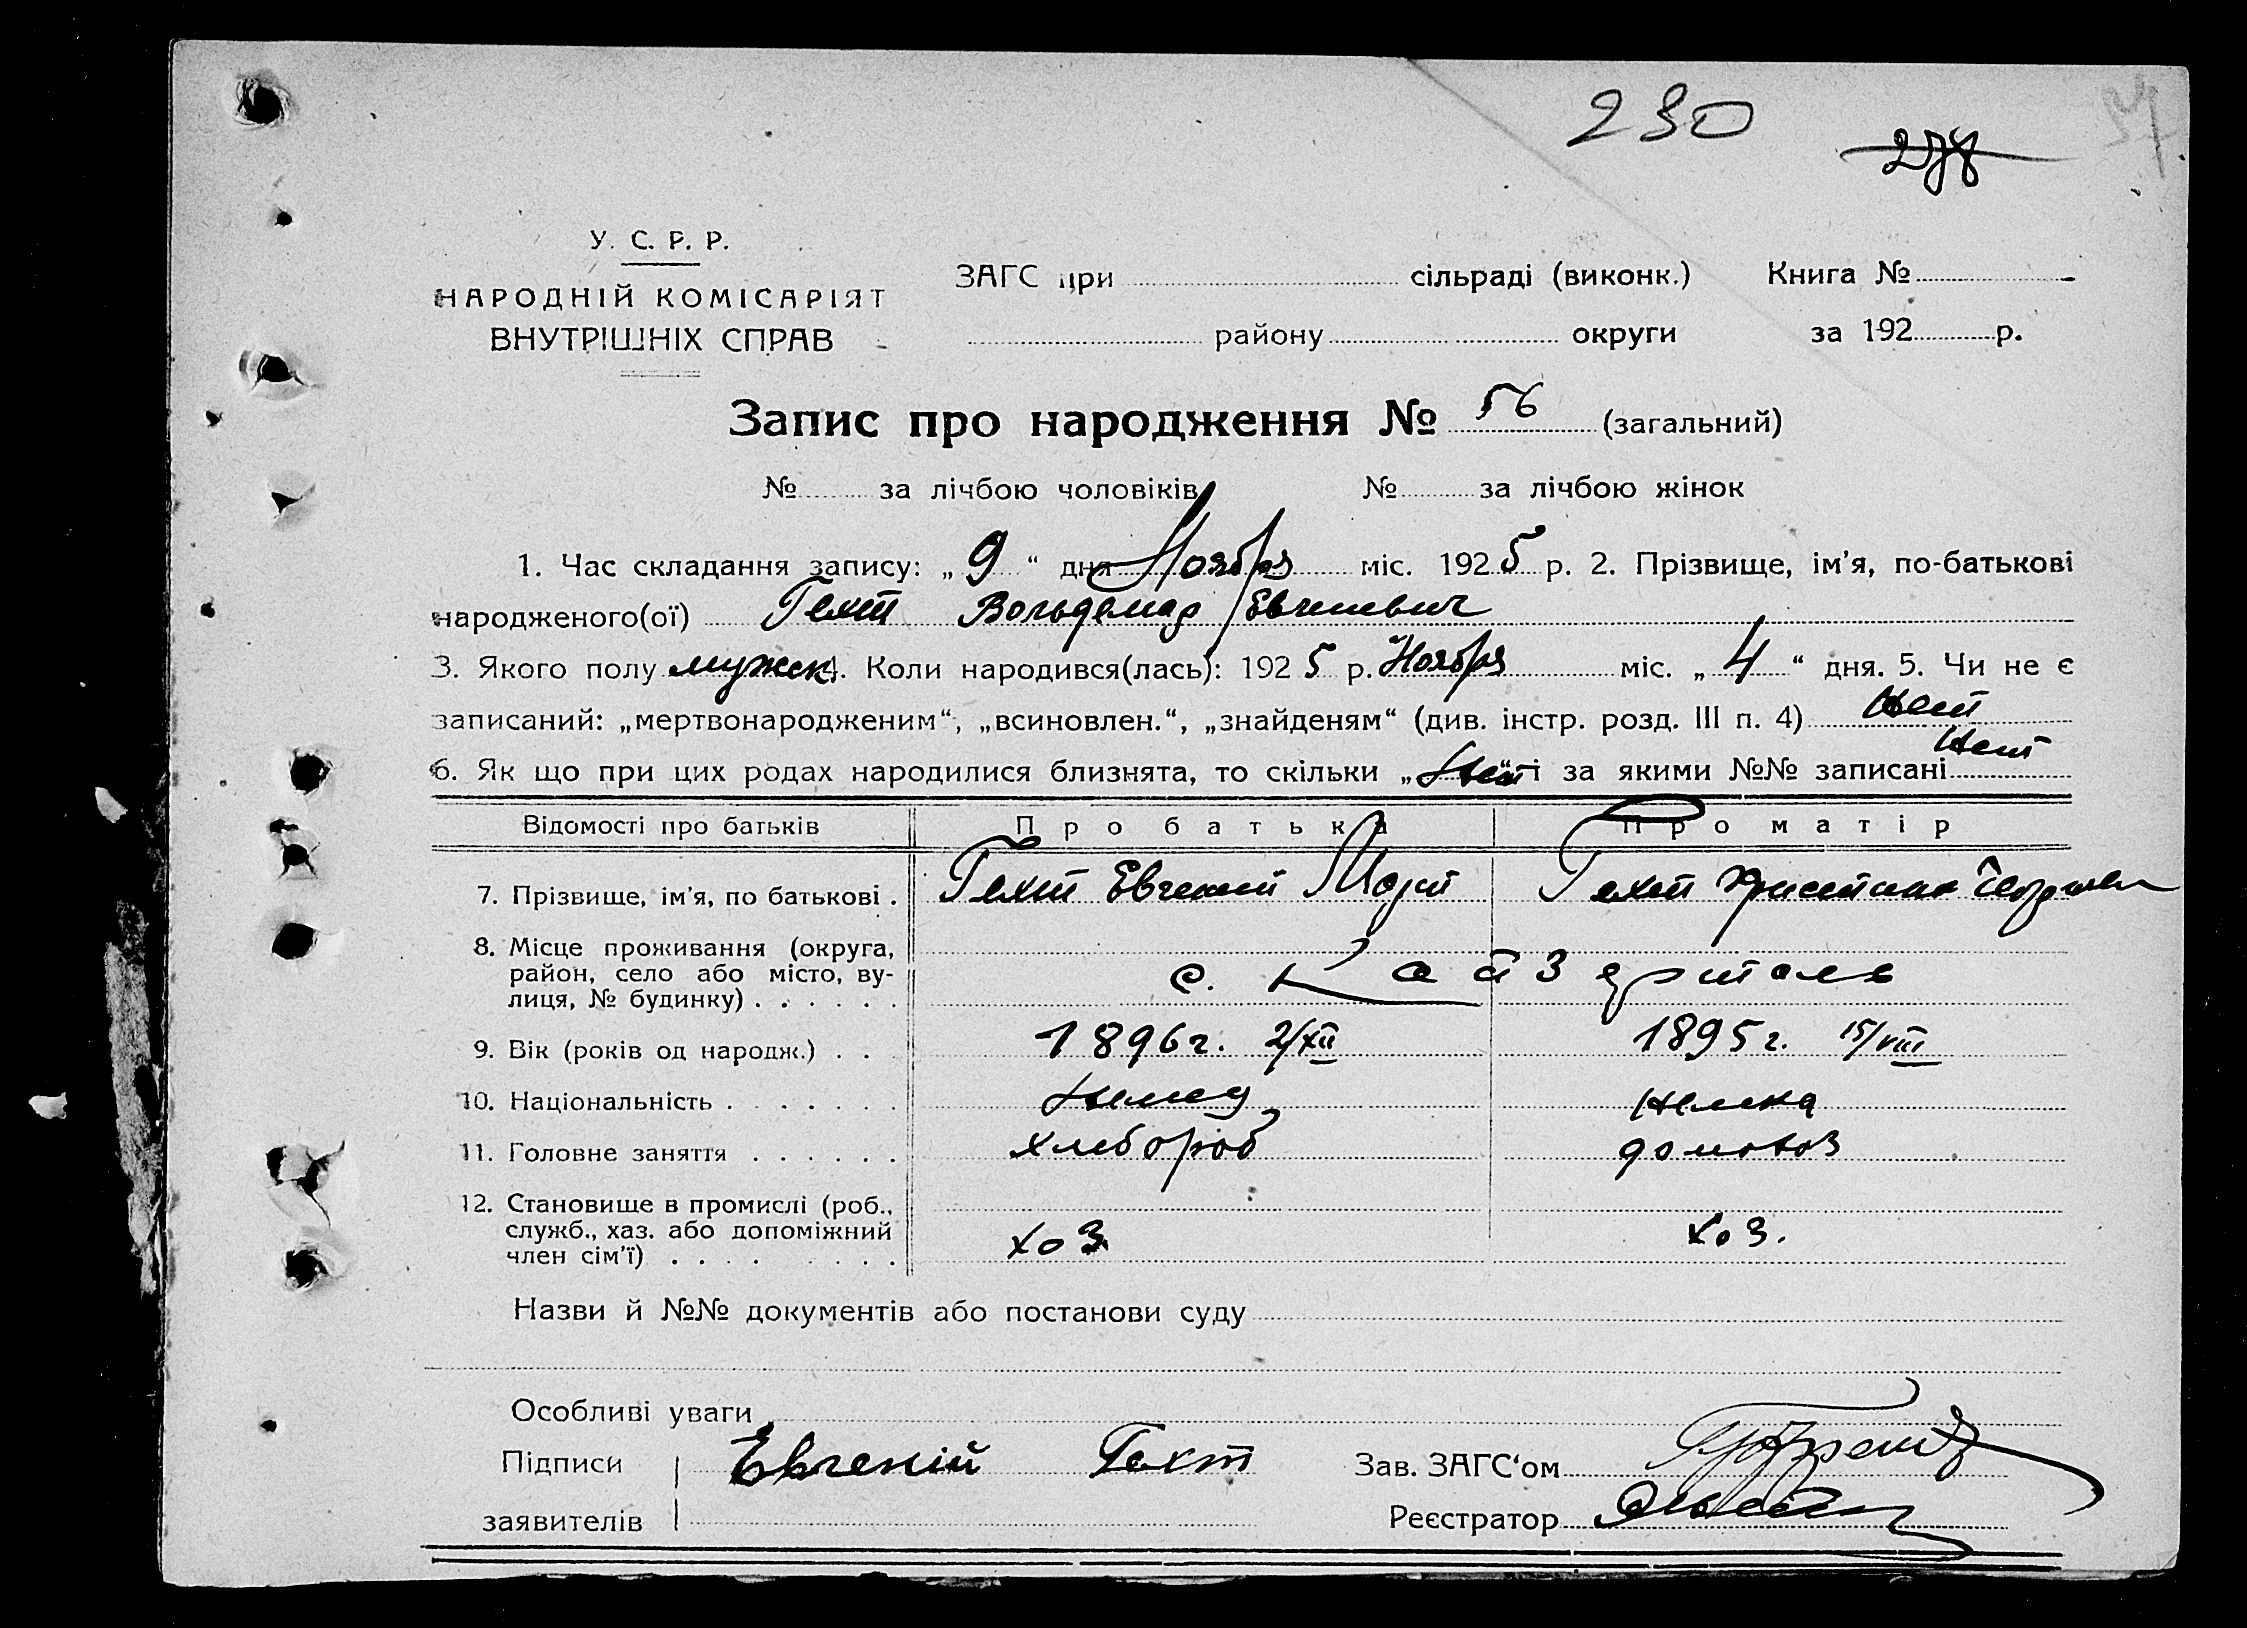 230
278
У. С. Р. Р.
НАРОДНІЙ КОМІСАРІЯТ
ВНУТРІШНІХ СПРАВ
ЗАГС при сільраді (виконк.) Книга №
району округи за 192 р.
Запис про народження № 56 (загальний)
№ за лічбою чоловіків № за лічбою жінок
1. Час складання запису: „9“ дня Ноября міс. 1925 р. 2. Прізвище, ім’я, по-батькові
народженого(ої) Гехт Вольдемар Евгеневич
3. Якого полу мужск 4. Коли народився(лась): 1925 р. Ноября міс. „4“ дня. 5. Чи не є
записаний: „мертвонародженим“, „всиновлен.“, „знайденям“ (див. інстр. розд. III п. 4) Нет
6. Як що при цих родах народилися близнята, то скільки „Нет“ і за якими №№ записані Нет
Відомості про батьків Про батька Про матір
7. Прізвище, ім’я, по батькові . Гехт Евгений Гехт Христина
8. Місце проживання (округа,
район, село або місто, ву-
лиця, № будинку) . . . . . . с. Кайзерталь
9. Вік (років од народж.) . . . 1896г. 2/XII 1895г. 15/VIII
10. Національність . . . . . . . Немец Немка
11. Головне заняття . . . . . . хлебороб домохоз
12. Становище в промислі (роб.,
служб., хаз. або допоміжний
член сім’ї) . . . . . . . . хоз. хоз.
Назви й №№ документів або постанови суду
Особливі уваги
Підписи Евгеній Гехт Зав. ЗАГС‘ом
заявителів Реєстратор